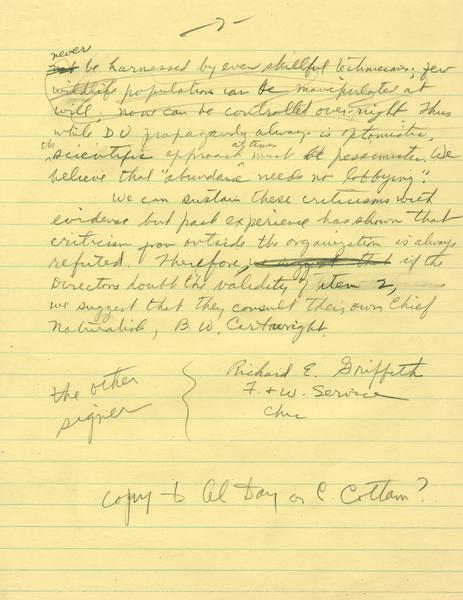 -7-
never
not be harnessed by even skillful technicians; few
wildlife populations can be manipulated at
will, none can be controlled over-night. Thus
while DU propaganda always is optomistic,
the scientific approach at times must be pessimistic. We
believe that "abundance needs no lobbying".
We can sustain these criticisms with
evidence but past experience has shown that
criticism from outside the organization is always
refuted. Therefore, we suggest that if the
Directors doubt the validity of item 2,
we suggest that they consult their own Chief
Naturalist, B. W. Cartwright.
Richard E. Griffith
F. & W. Service
the other
signer
copy to Al Day or C. Cottam?